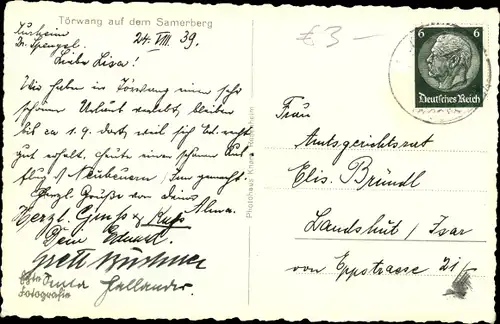 Törwang auf dem Samerberg
24. VIII 39.
Dr. Spengel.
Liebe Lisa!
Wir haben in Törwang einen sehr
schönen Urlaub verlebt, bleiben
bis ca 1. 9. dort, weil sich Ed. recht
gut erholt. Heute einen schönen Aus
flug n. Neubeuern / Inn gemacht.
Herzl. Grüße von deiner
Alma.
Herzl. Gruss & Kuss
Dein Eduard.
Grett Büchner
Hollander.
Echte
Fotografie
£ 3 -
6 6
Deutsches Reich
Frau
Amtsgerichtsrat
Elis. Bründl
Landshut / Isar
von Eppstrasse 21/